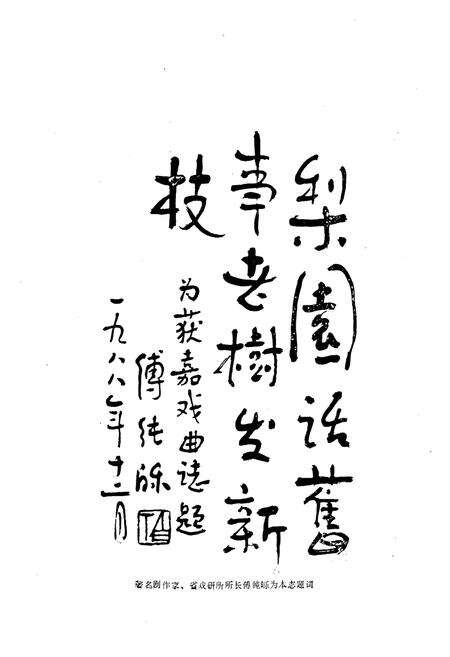 梨園话舊
事老樹发新
枝
为获嘉戏曲誌题
傅纯
一九八八年十二月
著名剧作家、省戏研所所长傅纯为本志题词